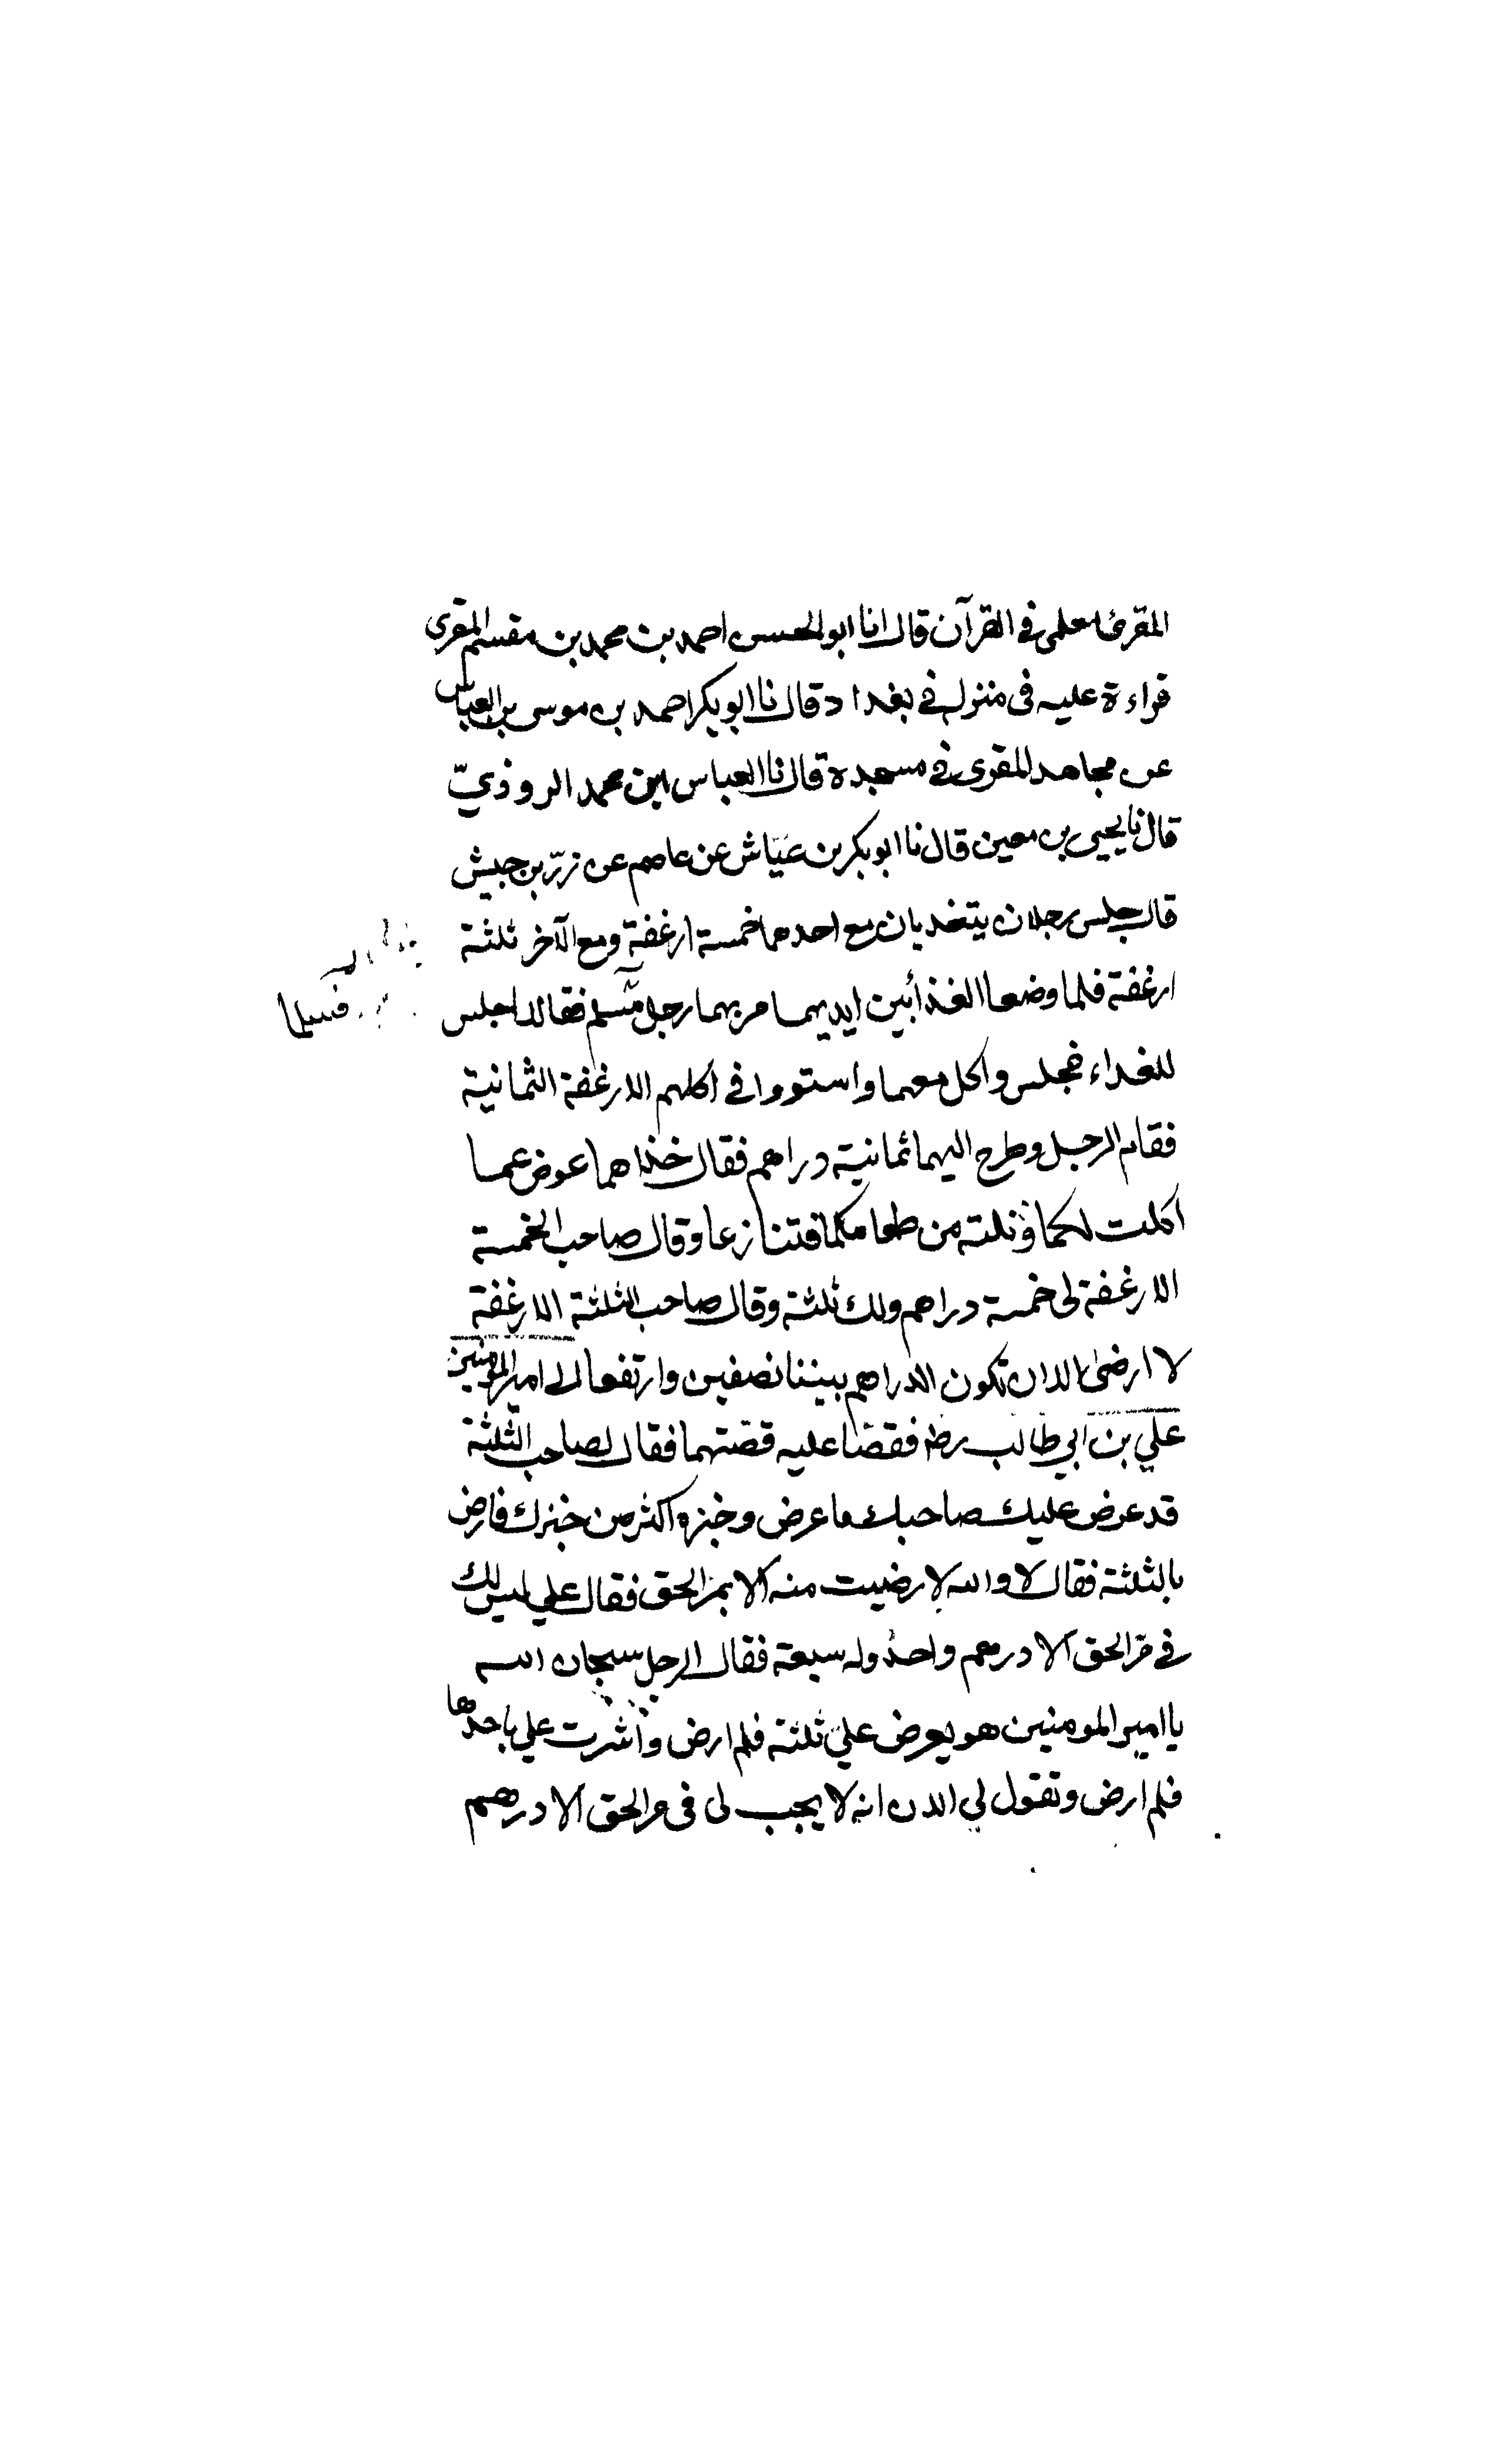 المقرئ معلمى في القرآن قال انا ابو الحسن احمد بن محمد بن مقسم المقرى
قراءة عليه فى منزله في بغداد قال نا ابو بكر احمد بن موسى بن العباس
عن مجاهد المقرى في مسجده قال نا العباس ابن محمد الروذيّ
قال نا يحيى بن معين قال نا ابو بكر بن عيّاش عن عاصم عن زرّ بن حبيش
قال جلس رجلان يتغديان مع احدهما خمسة ارغفة ومع الآخر ثلثة
ارغفة فلما وضعا الغذا بين ايديهما مر بهما رجل فسلم فقالا اجلس
للغداء فجلس واكل معهما واستووا في اكلهم الارغفة الثمانية
فقام الرجل وطرح اليهما ثمانية دراهم فقال خذاهما عوض عما
اكلت لكما ونلته من طعامكما فتنازعا وقال صاحب الخمسة
الارغفة لى خمسة دراهم ولك ثلثة وقال صاحب الثلثة الارغفة
لا ارضى الا ان تكون الدراهم بيننا نصفين وارتفعا الى امير المومنين
علي بن ابي طالب رضه فقصّا عليه قصّتهما فقال لصاحب الثلثة
قد عرض عليك صاحبك ما عرض وخبزه اكثر من خبزك فارض
بالثلثة فقال لا والله لا رضيت منه الا بمرّ الحق فقال علي ليس لك
في مرّ الحق الا درهم واحد وله سبعة فقال الرجل سبحان الله
يا امير المومنين هو يعرض عليّ ثلثة فلم ارض واشرت علي باخذها
فلم ارض وتقول لي الان انه لا يجب لى فى مر الحق الا درهم